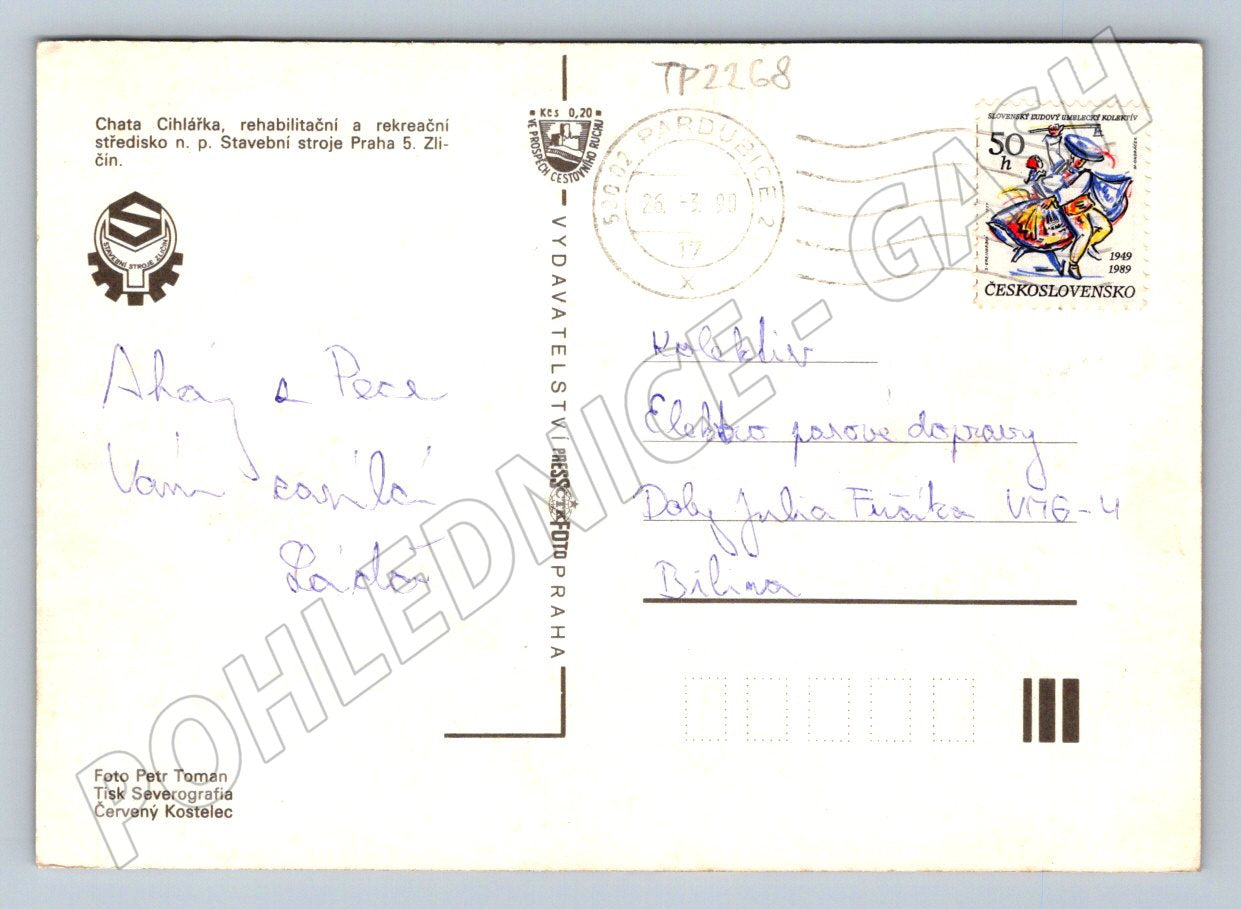 TP2268
Chata Cihlářka, rehabilitační a rekreační
středisko n. p. Stavební stroje Praha 5. Zli-
čín.
STAVEBNÍ STROJE ZLIČÍN
Kčs 0,20
VE PROSPĚCH CESTOVNÍHO RUCHU
530 02 PARDUBICE 2
26. -3. 90
17
x
SLOVENSKÝ ĽUDOVÝ UMELECKÝ KOLEKTÍV
50
h
1949
1989
ČESKOSLOVENSKO
Ahoj z Pece
Vám zasílá
Láďa
VYDAVATELSTVÍ PRESSFOTO PRAHA
ČTK
Kolektiv
Elektro pasové dopravy
Doly Julia Fučíka
Bílina
Foto Petr Toman
Tisk Severografia
Červený Kostelec
POHLEDNICE - GASH